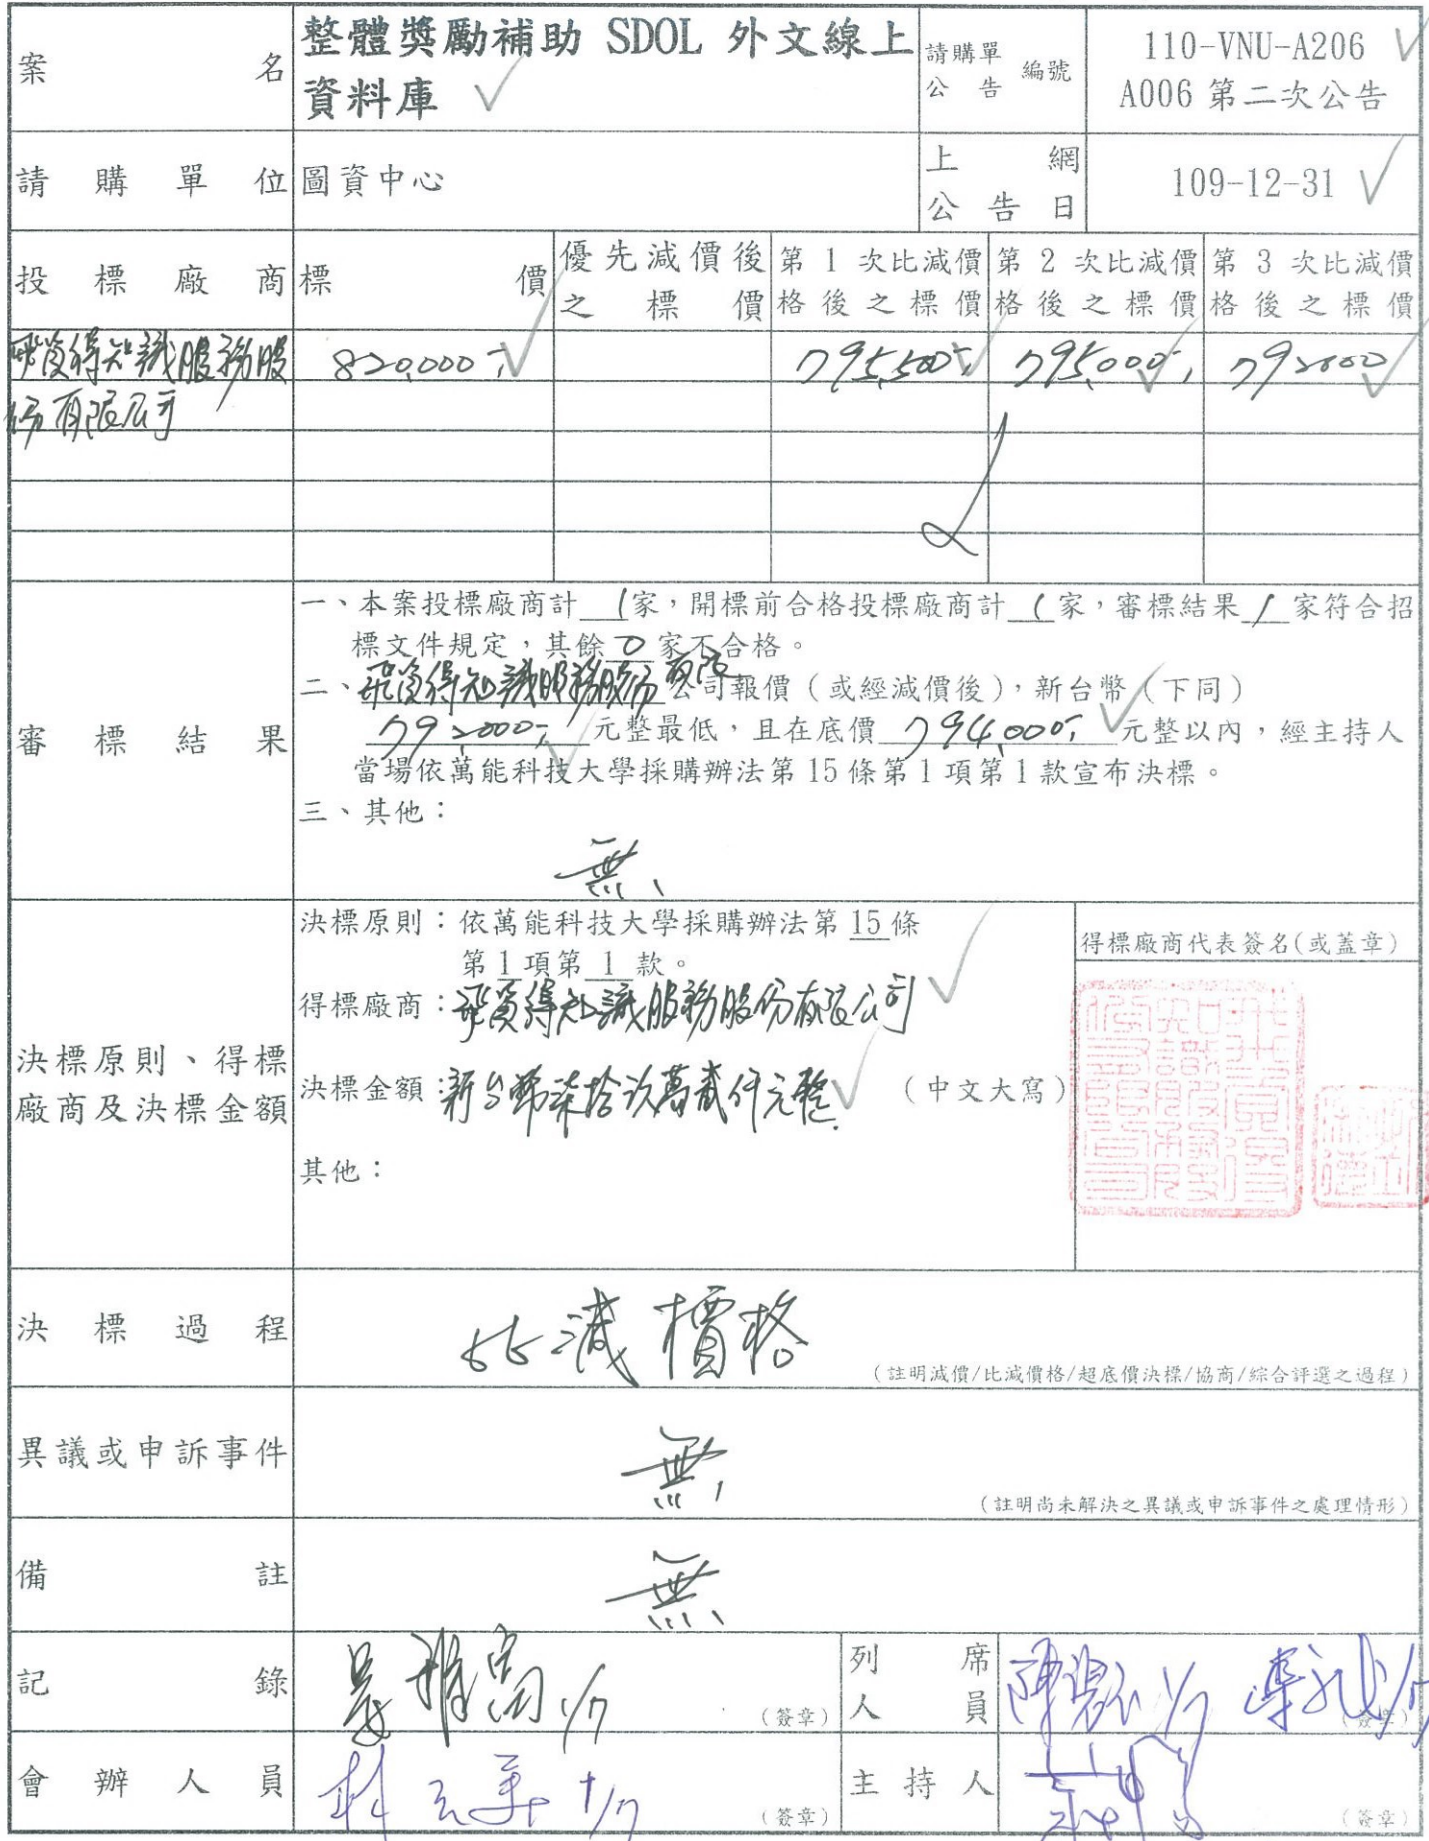 案名
整體獎勵補助 SDOL 外文線上
資料庫
請購單
公告
編號
110-VNU-A206
A006 第二次公告
請購單位
圖資中心
上網
公告日
109-12-31
投標廠商
標價
優先減價後
之標價
第 1 次比減價
格後之標價
第 2 次比減價
格後之標價
第 3 次比減價
格後之標價
飛資得知識服務股
份有限公司
820,000
795,500
795,000
792000
審標結果
一、本案投標廠商計 1 家,開標前合格投標廠商計 1 家,審標結果 1 家符合招
標文件規定,其餘 0 家不合格。
二、飛資得知識服務股份有限公司報價(或經減價後),新台幣(下同)
792,000 元整最低,且在底價 794,000 元整以內,經主持人
當場依萬能科技大學採購辦法第 15 條第 1 項第 1 款宣布決標。
三、其他:
無
決標原則、得標
廠商及決標金額
決標原則:依萬能科技大學採購辦法第 15 條
第 1 項第 1 款。
得標廠商:飛資得知識服務股份有限公司
決標金額:新台幣柒拾玖萬貳仟元整
(中文大寫)
其他:
得標廠商代表簽名(或蓋章)
飛資得
知識服務
股份有限公司
決標過程
比減價格
(註明減價/比減價格/超底價決標/協商/綜合評選之過程)
異議或申訴事件
無
(註明尚未解決之異議或申訴事件之處理情形)
備註
無
記錄
1/7
(簽章)
列席
人員
1/7
1/7
(簽章)
會辦人員
1/7
(簽章)
主持人
(簽章)